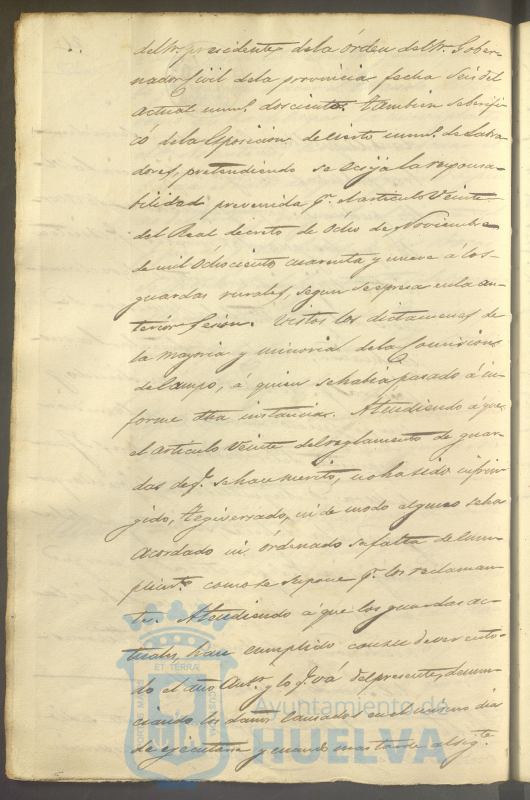 del Sr. presidente de la órden del Sr. Gober-
nador Civil de la provincia fecha Seis del
actual numº doscientos. Tambien se berifi-
có de la Esposicion de cierto numº de Labra
dores, pretendiendo se ecsija la responsa-
bilidad prevenida pr. el articulo Veinte
del Real decreto de Ocho de Noviembre
de mil Ochociento cuarenta y nueve á los
guardas rurales, segun se espresa en la an-
terior Sesion. Vistos los dictamenes de
la mayoria y minoria de la Comision
de Campo, á quien se habia pasado á in-
forme dha instancia. Atendiendo á que
el articulo Veinte del reglamento de guar-
das de qe. se hace merito, no ha sido infrin
gido, tegiversado, ni de modo alguno se ha
acordado ni órdenado su falta de cum-
plimto. como se supone pr. los reclaman-
tes. Atendiendo á que los guardas ac-
tuales, han cumplido con su dever en to-
do el año Antr. y lo qe. vá del presente, denun-
ciando los daños causados en el mismo dia
de ejecutarse y cuando mas tarde al sigte.
PORTUS MARIS ET TERRAE CUSTODIA
Ayuntamiento de
HUELVA